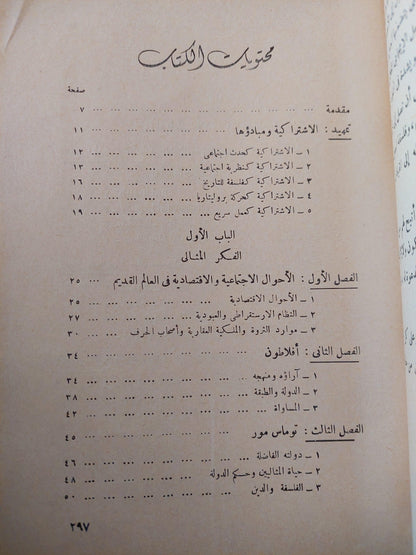 محتويات الكتاب
صفحة
مقدمة ... ٧
تمهيد : الاشتراكية ومبادؤها ... ١١
١ – الاشتراكية كحدث اجتماعى ... ١٢
٢ – الاشتراكية كنظرية اجتماعية ... ١٣
٣ – الاشتراكية كفلسفة للتاريخ ... ١٦
٤ – الاشتراكية كحركة بروليتاريا ... ١٨
٥ – الاشتراكية كعمل سريع ... ١٩
الباب الأول
الفكر المثالى
الفصل الأول : الأحوال الاجتماعية والاقتصادية فى العالم القديم ... ٢٥
١ – الأحوال الاقتصادية ... ٢٥
٢ – النظام الارستقراطى والعبودية ... ٢٧
٣ – موارد الثروة والملكية العقارية وأصحاب الحرف ... ٣٠
الفصل الثانى : أفلاطون ... ٣٤
١ – آراؤه ومنهجه ... ٣٤
٢ – الدولة والطبقة ... ٣٨
٣ – المساواة ... ٤٢
الفصل الثالث : توماس مور ... ٤٥
١ – دولته الفاضلة ... ٤٦
٢ – حياة المثاليين وحكم الدولة ... ٤٨
٣ – الفلسفة والدين ... ٥٠
٢٩٧